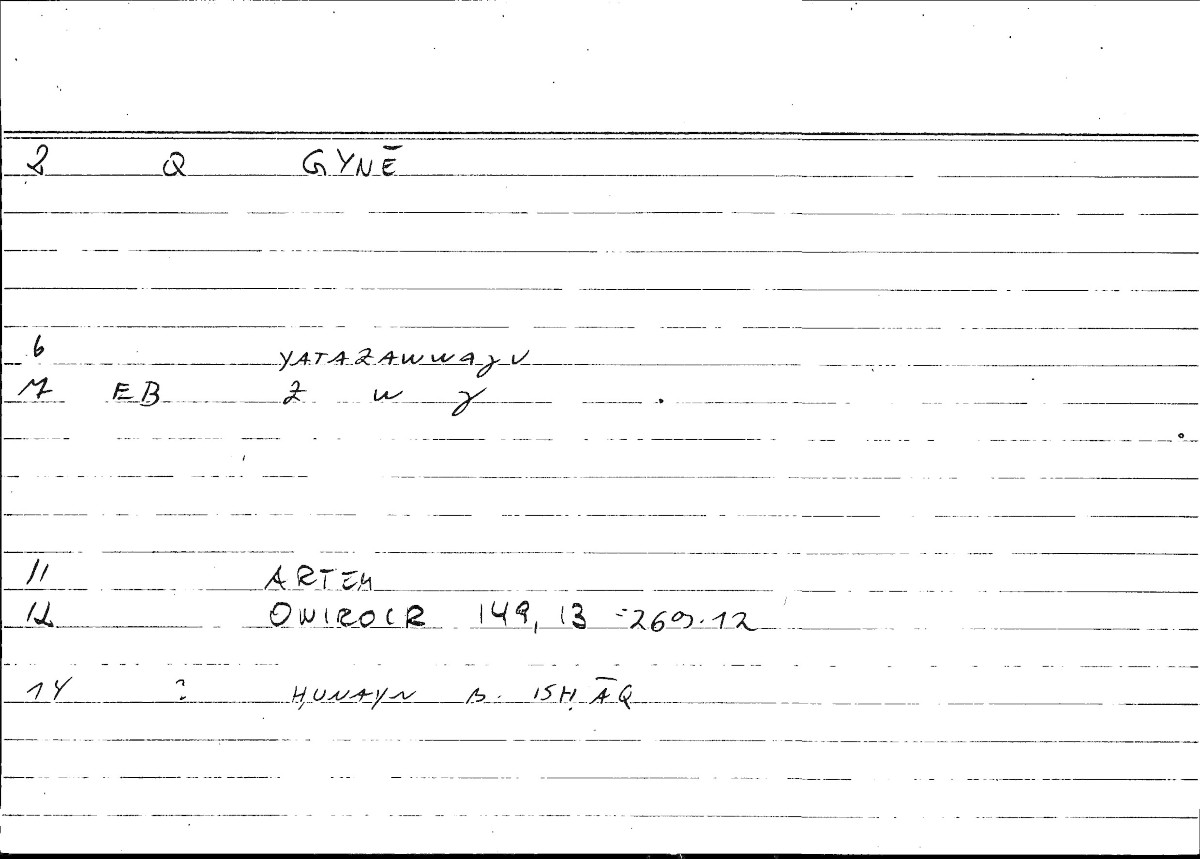 2 Q GYNĒ
6 YATAZAWWAJU
7 EB Z W J
11 ARTEM
12 ONIROCR 149, 13 = 269.12
14 ? ḤUNAYN B. ISḤĀQ